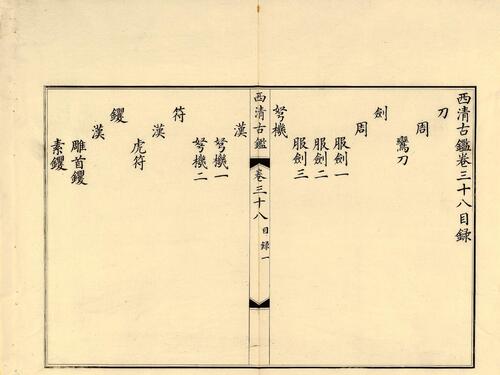 西清古鑑卷三十八目録
刀
周
鸞刀
劍
周
服劍一
服劍二
服劍三
弩機
西清古鑑 卷三十八 目録 一
漢
弩機一
弩機二
符
漢
虎符
鑺
漢
雕首鑺
素鑺